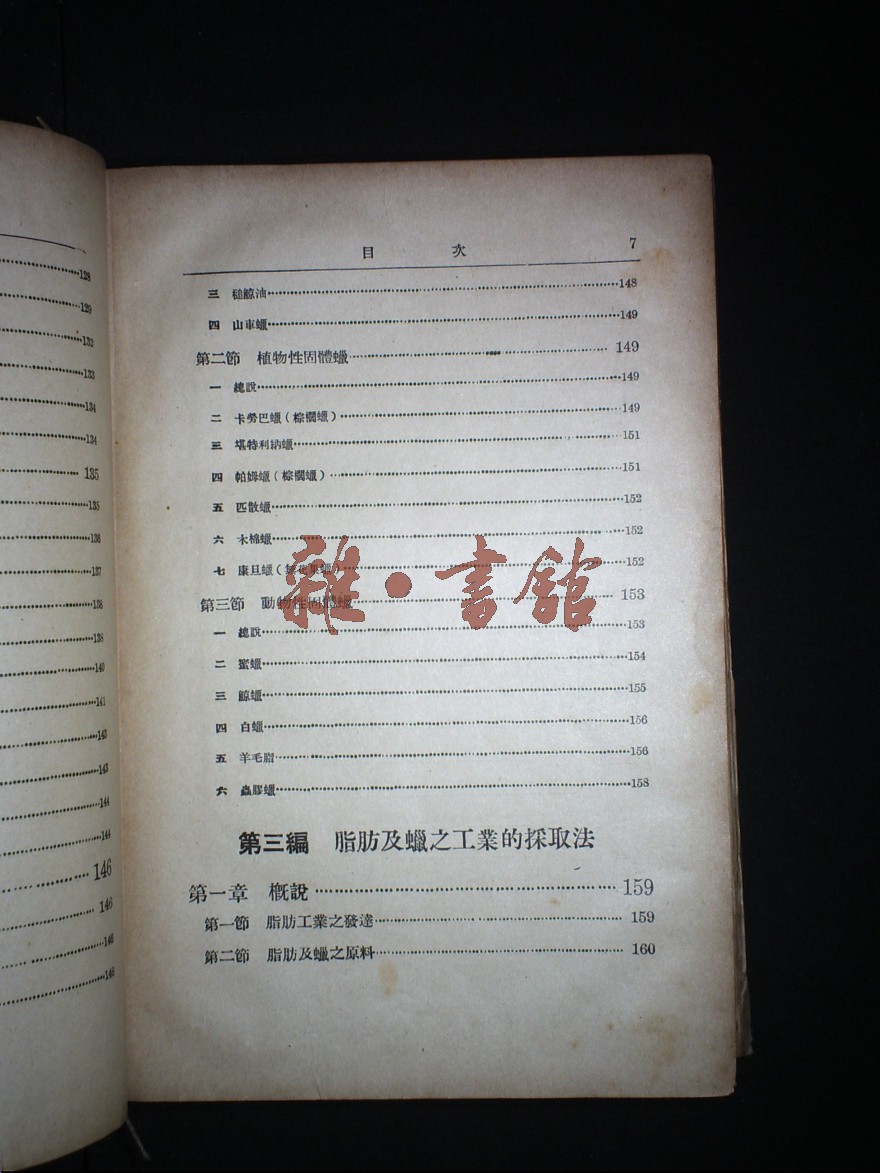 128
129
132
133
134
134
135
135
136
137
138
138
140
141
143
143
144
144
146
146
146
146
目 次 7
三 槌鯨油 148
四 山車蠟 149
第二節 植物性固體蠟 149
一 總說 149
二 卡勞巴蠟（棕櫚蠟） 149
三 堪特利納蠟 151
四 帕姆蠟（棕櫚蠟） 151
五 匹散蠟 152
六 木棉蠟 152
七 康旦蠟（無花果蠟） 152
雜·書館
第三節 動物性固體蠟 153
一 總說 153
二 蜜蠟 154
三 鯨蠟 155
四 白蠟 156
五 羊毛脂 156
六 蟲膠蠟 158
第三編 脂肪及蠟之工業的採取法
第一章 概說 159
第一節 脂肪工業之發達 159
第二節 脂肪及蠟之原料 160